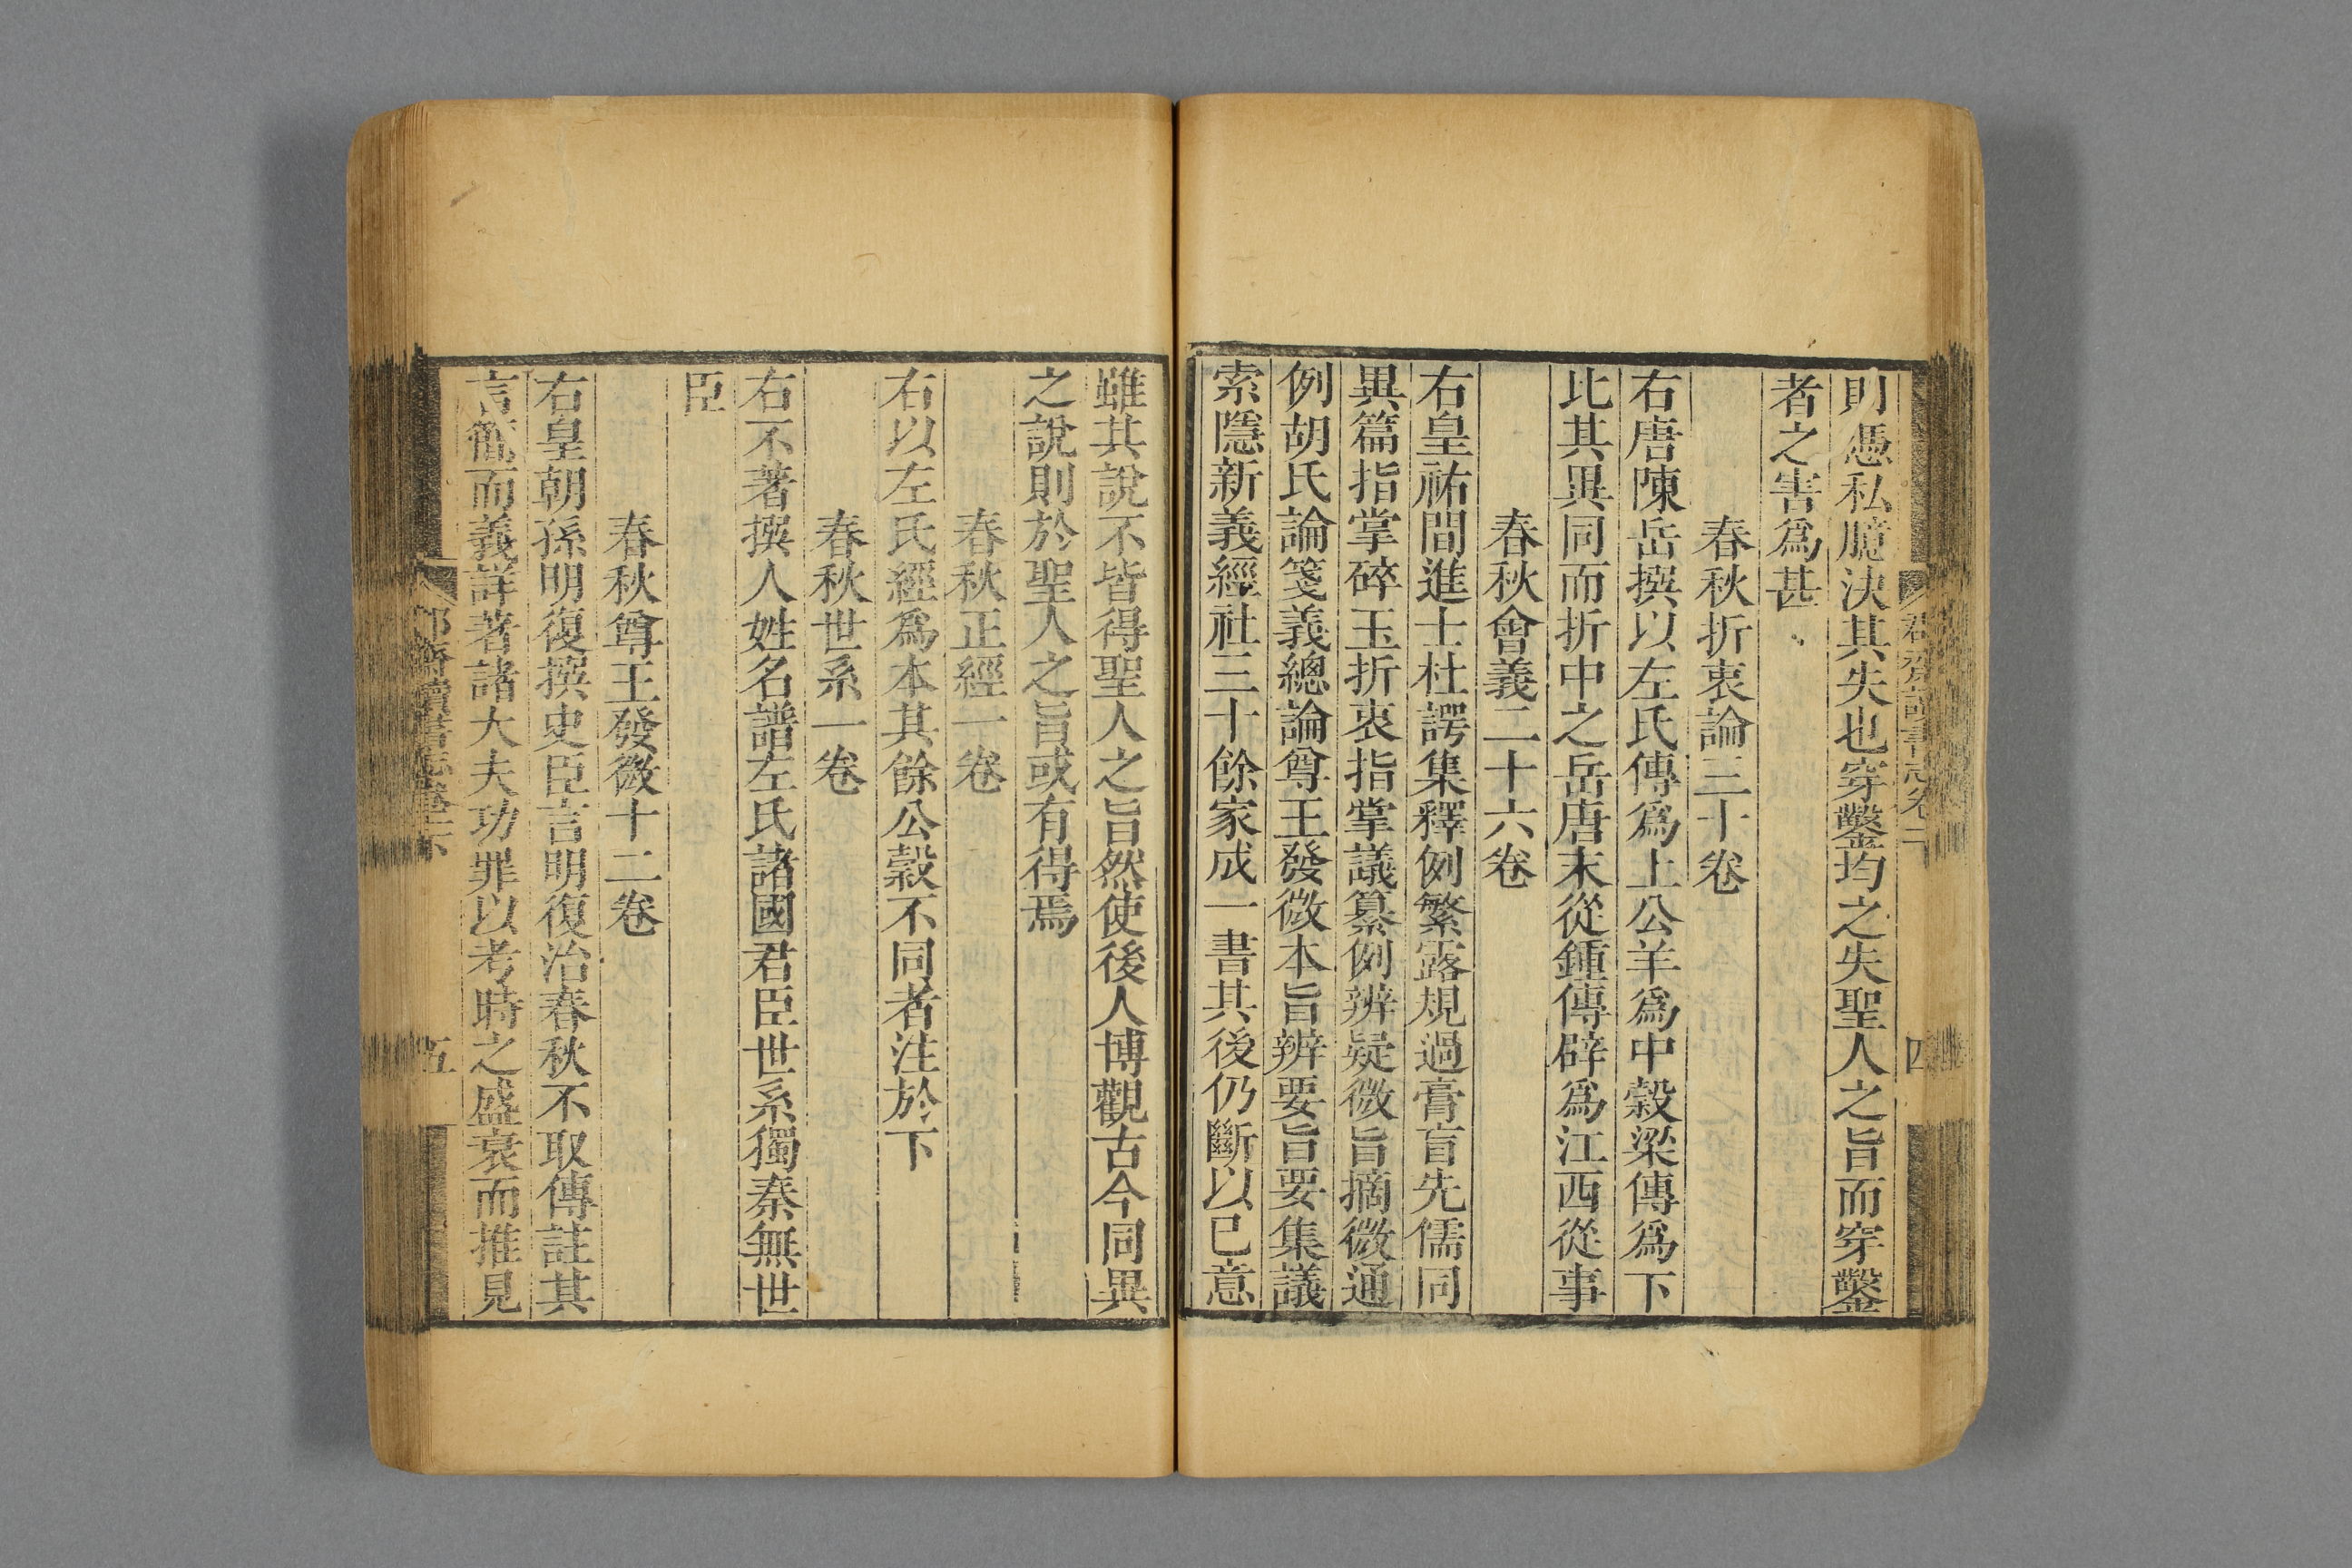 則憑私臆決其失也穿鑿均之失聖人之旨而穿鑿
者之害爲甚
春秋折衷論三十卷
右唐陳岳撰以左氏傳爲上公羊爲中穀梁傳爲下
比其異同而折中之岳唐末從鍾傳辟爲江西從事
春秋會義二十六卷
右皇祐間進士杜諤集釋例繁露規過膏盲先儒同
異篇指掌碎玉折衷指掌議纂例辨疑微旨摘微通
例胡氏論箋義總論尊王發微本旨辨要旨要集議
索隱新義經社三十餘家成一書其後仍斷以已意
雖其說不皆得聖人之旨然使後人博觀古今同異
之說則於聖人之旨或有得焉
春秋正經一卷
右以左氏經爲本其餘公穀不同者注於下
春秋世系一卷
右不著撰人姓名譜左氏諸國君臣世系獨秦無世
臣
春秋尊王發微十二卷
右皇朝孫明復撰史臣言明復治春秋不取傳註其
言簡而義詳著諸大夫功罪以考時之盛衰而推見
五